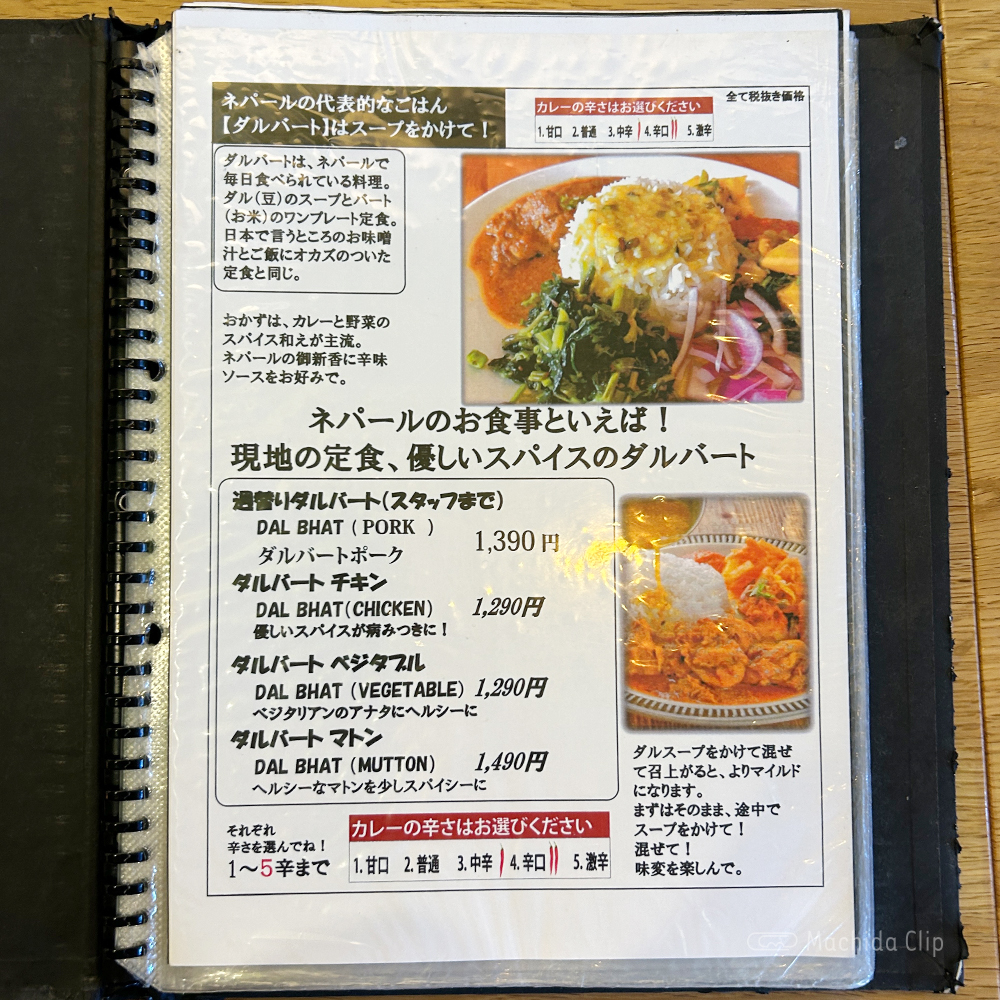 ネパールの代表的なごはん
【ダルバート】はスープをかけて！
カレーの辛さはお選びください
1.甘口 2.普通 3.中辛 4.辛口 5.激辛
全て税抜き価格
ダルバートは、ネパールで
毎日食べられている料理。
ダル(豆)のスープとバート
(お米)のワンプレート定食。
日本で言うところのお味噌
汁とご飯にオカズのついた
定食と同じ。
おかずは、カレーと野菜の
スパイス和えが主流。
ネパールの御新香に辛味
ソースをお好みで。
ネパールのお食事といえば！
現地の定食、優しいスパイスのダルバート
週替りダルバート(スタッフまで)
DAL BHAT ( PORK )
ダルバートポーク
1,390 円
ダルバート チキン
DAL BHAT(CHICKEN) 1,290円
優しいスパイスが病みつきに！
ダルバート ベジタブル
DAL BHAT (VEGETABLE) 1,290円
ベジタリアンのアナタにヘルシーに
ダルバート マトン
DAL BHAT (MUTTON) 1,490円
ヘルシーなマトンを少しスパイシーに
それぞれ
辛さを選んでね！
1～5辛まで
カレーの辛さはお選びください
1.甘口 2.普通 3.中辛 4.辛口 5.激辛
ダルスープをかけて混ぜ
て召上がると、よりマイルド
になります。
まずはそのまま、途中で
スープをかけて！
混ぜて！
味変を楽しんで。
Machida Clip